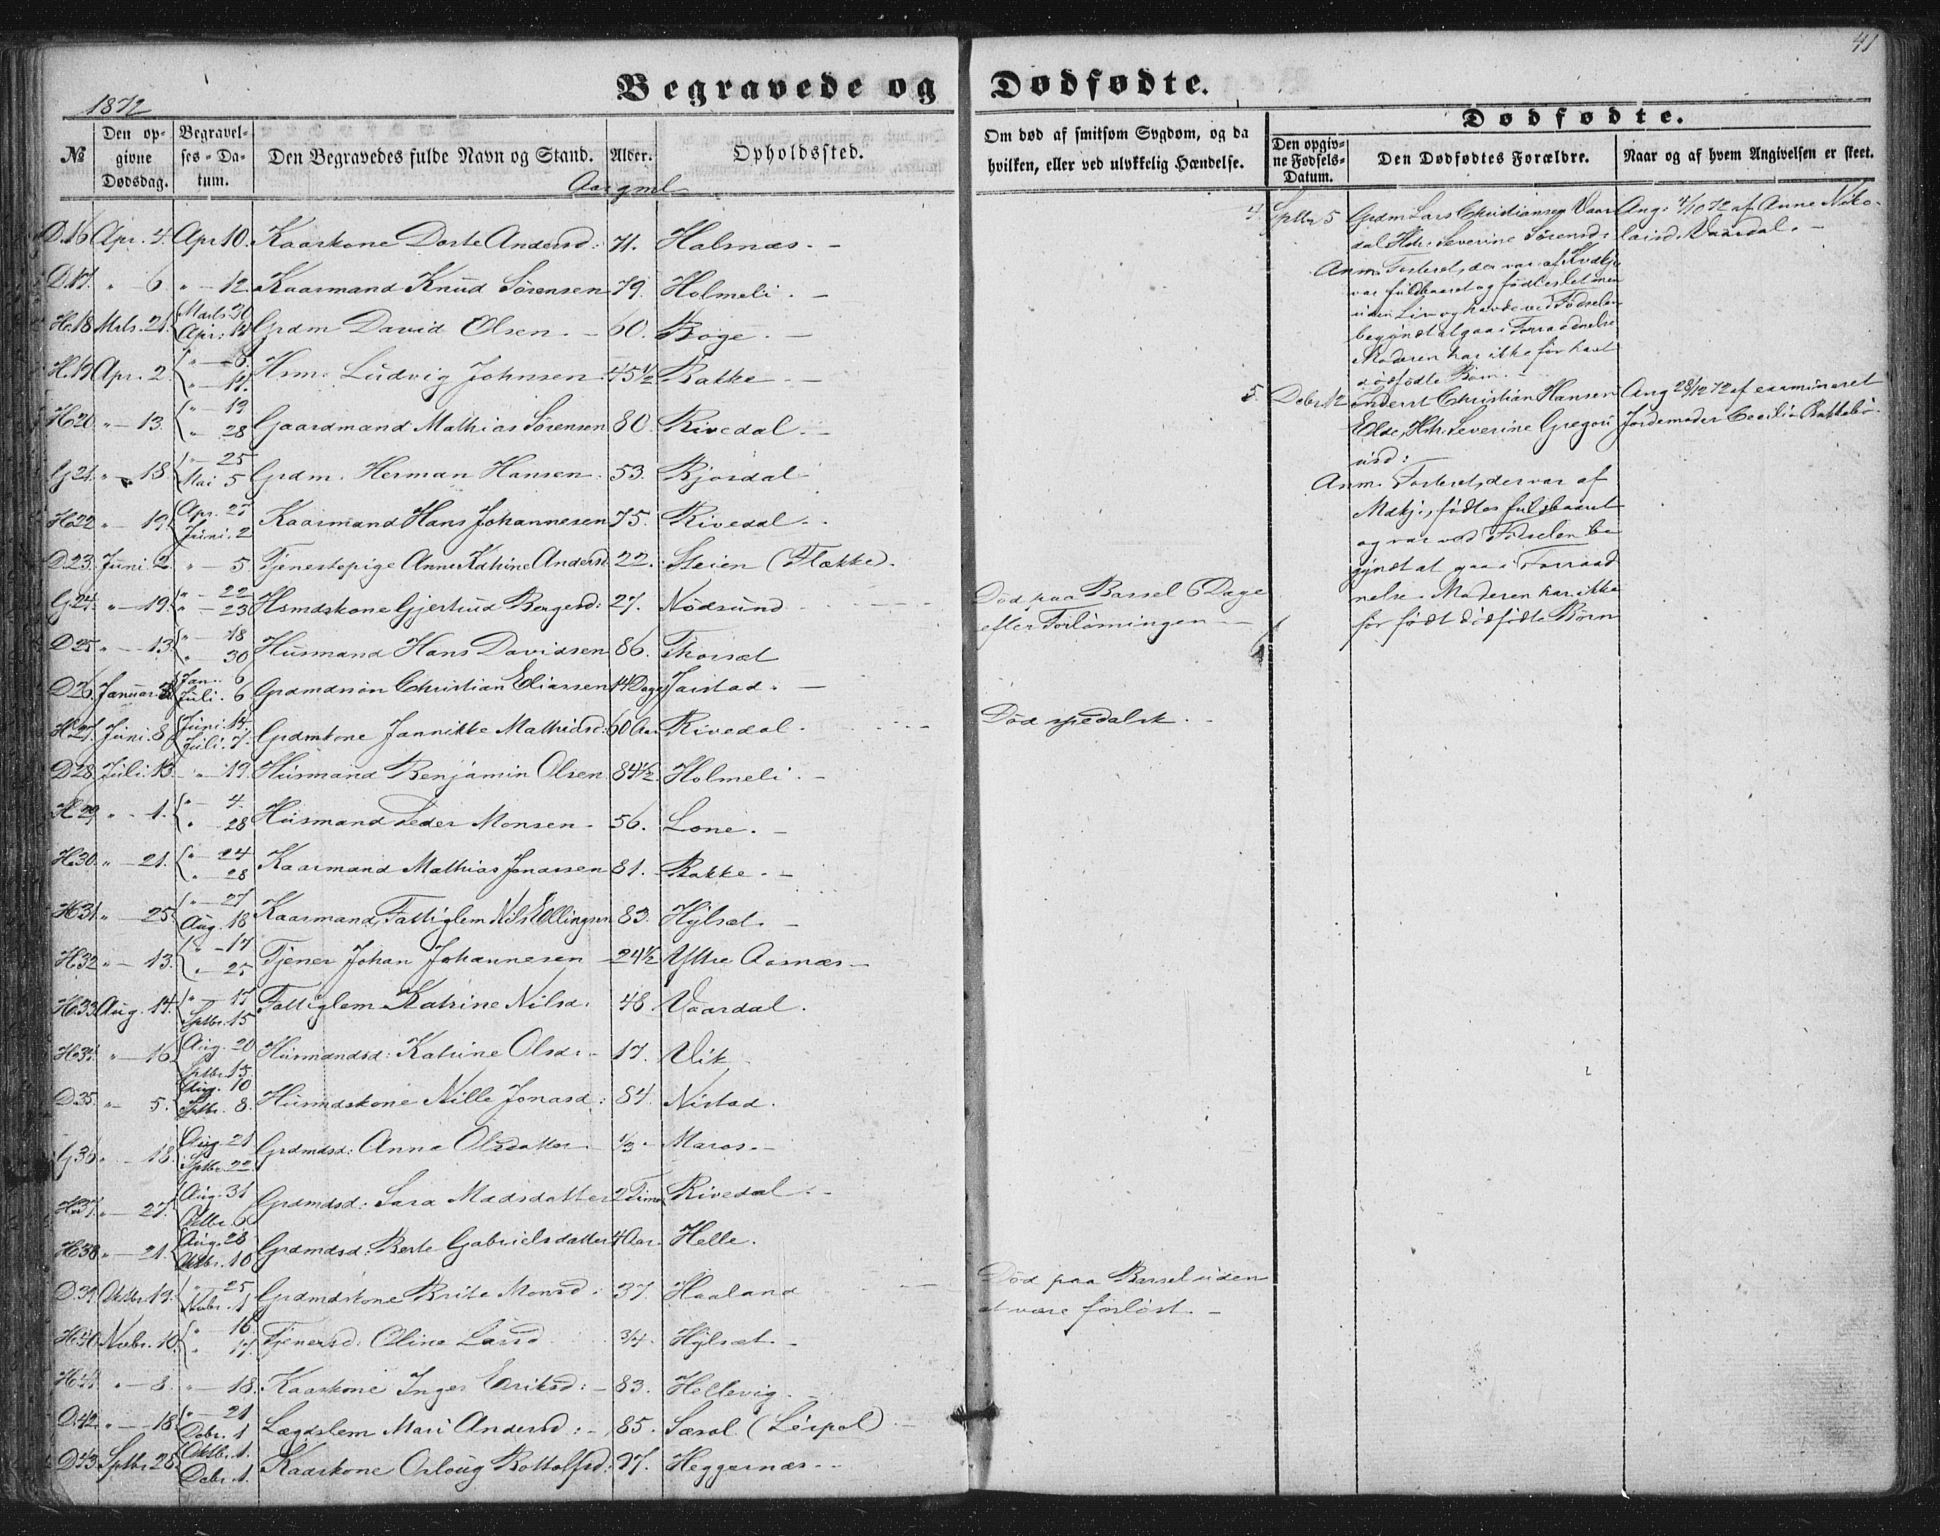 41
Begravede og Dødfødte.
1872
Dødfødte.
№
Den op-
givne
Dødsdag.
Begravel-
ses-Da-
tum.
Den Begravedes fulde Navn og Stand.
Alder.
Opholdssted.
Om død af smitsom Sygdom, og da
hvilken, eller ved ulykkelig Hændelse.
Den opgiv-
ne Fødsels-
Datum.
Den Dødfødtes Forældre.
Naar og af hvem Angivelsen er skeet.
Aar gml.
D.16 Apr. 4. Apr 10. Kaarkone Dorte Andersd: 71. Halsnæs. -
D.17. " 6 " - 12. Kaarmand Knud Sørensen 79. Holmeli. -
H.18 Mrts. 21. Marts 30 Apr: 14 Grdm David Olsen. - 60. Boge. -
H.19 Apr. 2. " - 6. " - 14. Hsm: Ludvig Johnsen 45½ Bakke. -
H.20 " - 13. " - 19 " 28 Gaardmand Mathias Sørensen 80. Rivedal. -
G.21. " - 18. " - 25 Mai 5 Grdm. Herman Hansen. 53. Bjordal
H.22 " - 19. Apr. 27 Juni. 2 Kaarmand Hans Johannesen 75. Rivedal. -
D.23. Juni. 2. " - 5 Tjenestepige Anne Katrine Andersd. 22. Steien (Flække).
G.24. " - 19. " - 22 " - 23 Hsmdskone Gjertrud Bergesd: 27. Nødsund
Død paa Barsel 6 Dage
efter Forløsningen -
D.25 " - 13. " - 18 " 30 Husmand Hans Davidsen 86. Thorsæt
D.26. Januar Jan. 6 Juli. 6 Grdmdsøn Christian Eliassen 14 Dage Jarstad. -
H.27. Juni. 8. Juni. 14. Juli. 7. Grdmkone Jannikke Mathiasd: 60 Aar Rivedal.
Død spedalsk. -
D.28. Juli. 13. " - 19. Husmand Benjamin Olsen 84½. Holmeli. -
H.29. " - 1. " - 4. " 28 Husmand Peder Monsen - 56. Lone. -
H.30. " - 21. " - 24 " 28 Kaarmand Mathias Jonassen 81. Bakke. -
H.31. " - 25. " - 27 Aug. 18 Kaarmand, Fattiglem Nils Ellingsen 83. Hylsæt. -
H.32 " - 13. " - 17 " - 25 Tjener Johan Johannesen - 24½ Yttre Aasnæs -
H.33 Aug. 14. " - 15 Sptbr. 15 Fattiglem Katrine Nilsd: 48. Vaardal.
H.34. " - 16 Aug. 20 Sptbr. 15 Husmandsd: Katrine Olsd: - 17. Vik
D.35. " - 5. Aug. 10 Sptbr. 8. Husmdskone Nille Jonasd: 84. Nistad.
G.36. " - 18. Aug. 21 Sptbr. 22 Grdmdsd: Anne Olsdatter ½ - Maros. -
H.37. " - 27. Aug. 31 Oktbr. 6 Grdmdsd: Sara Madsdatter 2 Timer Rivedal. -
H.38 " - 21. Aug. 28 Oktbr. 10 Grdmdsd: Berte Gabrielsdatter 4 Aar. Helle.
D.39. Oktbr. 19. " - 25 Novbr. 1 Grdmdskone Brite Monsd: 37. Haaland
Død paa Barsel uden
at være forløst. -
H.40. Novbr. 10. " - 16 " - 17. Tjenersd: Oline Larsd. ¾. Hylsæt. -
H.41. " - 8. " - 18. Kaarkone Inger Eriksd: - 83. Hellevig. -
D.42. " - 18. " - 21 Decbr. 1 Lægdslem Mari Andersd: - 85. Sæsol ()
D.43. Sptbr. 28. Oktbr. 1. Decbr. 1. Kaarkone Orloug Bottolfsd: 97. Heggernæs. -
4. Sptbr 5 Grdm Lars Christiansen Vaar-
dal, Hstr: Severine Sørensd:
Anm. Fosteret, der var af Kvdkjøn
var fuldbaaret og fødtes let, men
uden Liv og havde ved Fødselen
begyndt at gaa i Forraadnelse
Moderen har ikke før havt
dødfødte Børn. -
Ang: 4/10 72 af Anne Niko-
laisd. Vaardal. -
5. Decbr 12 Inderst Christian Hansen
Elde, Hstr: Severine Gregori-
usd:
Anm. Fosteret, der var af
Mdkj., fødtes fuldbaaret
og var ved Fødselen be-
gyndt at gaa i Forraad-
nelse. Moderen har ikke
før født dødfødte Børn
Ang 28/12 72 af examineret
Jordemoder Cecilie Rattebø.